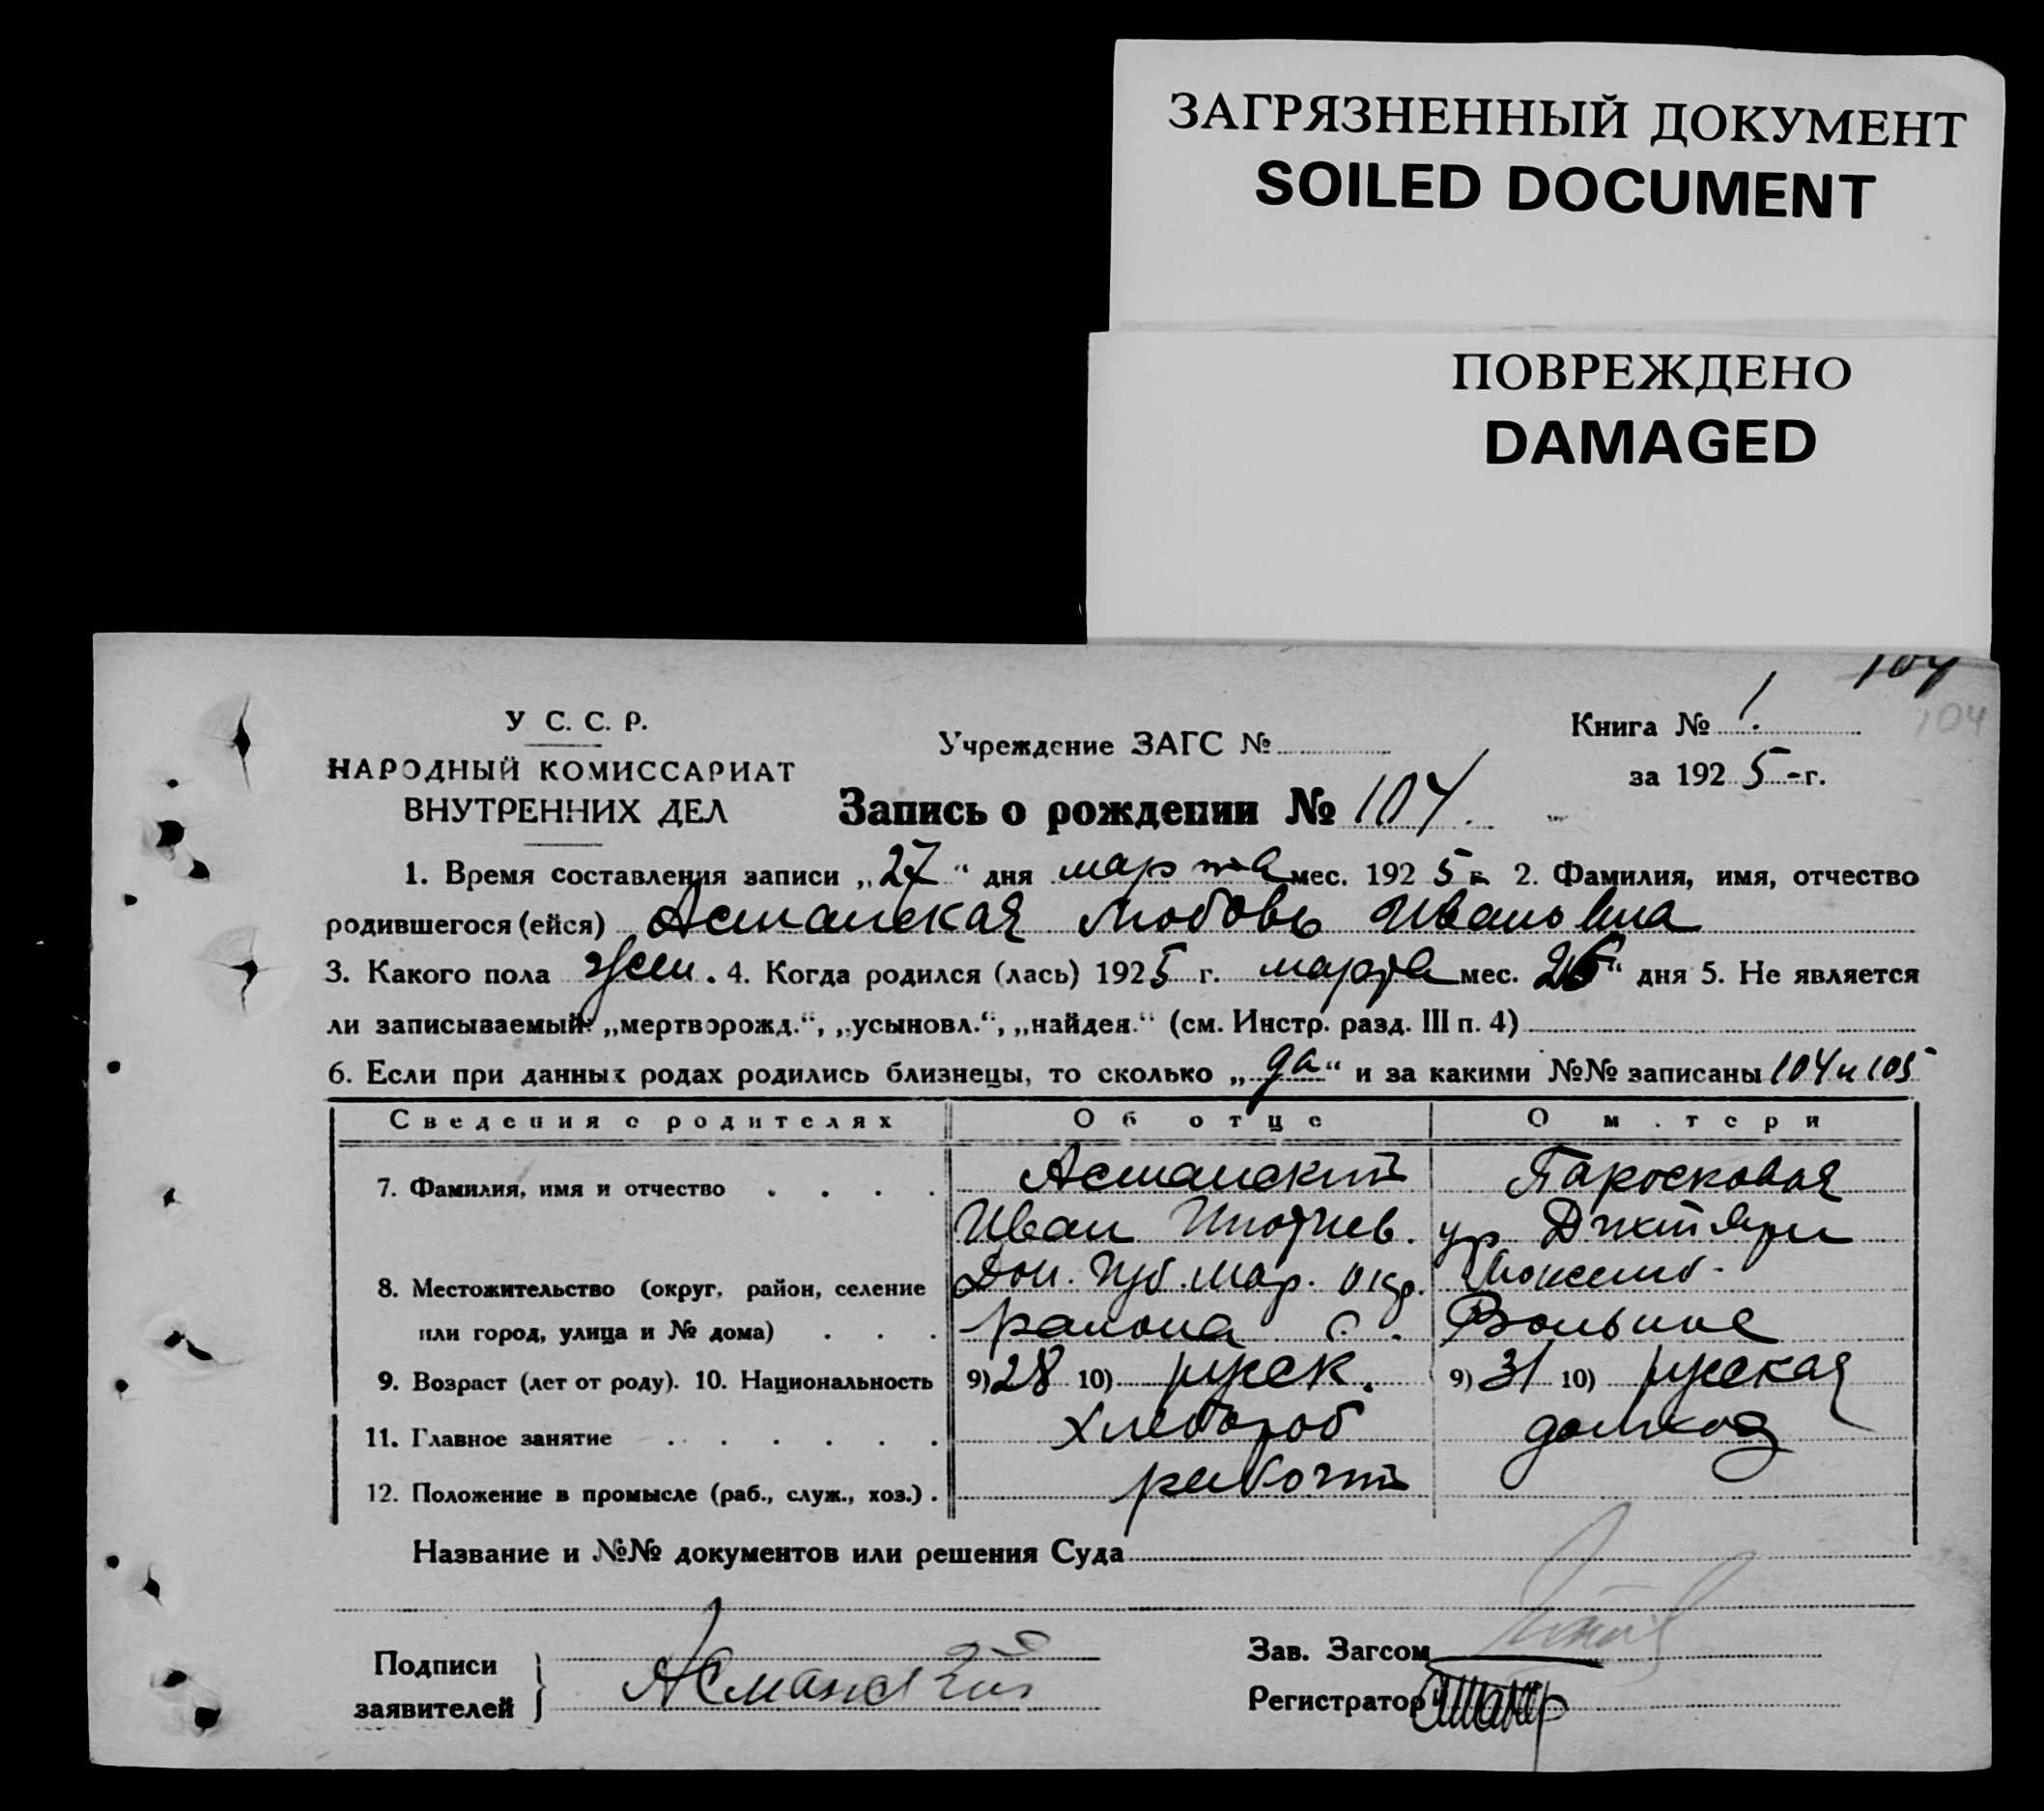 ЗАГРЯЗНЕННЫЙ ДОКУМЕНТ
SOILED DOCUMENT
ПОВРЕЖДЕНО
DAMAGED
104
104
У С. С. Р.
НАРОДНЫЙ КОМИССАРИАТ
ВНУТРЕННИХ ДЕЛ
Учреждение ЗАГС №
Книга № 1.
за 1925-г.
Запись о рождении № 104.
1. Время составления записи „27“ дня марта мес. 1925 г. 2. Фамилия, имя, отчество
родившегося (ейся) Асманская Любовь Ивановна
3. Какого пола жен. 4. Когда родился (лась) 1925 г. марта мес. 26“ дня 5. Не является
ли записываемый: „мертворожд.“, „усыновл.“, „найден.“ (см. Инстр. разд. III п. 4)
6. Если при данных родах родились близнецы, то сколько „да“ и за какими №№ записаны 104 и 105
Сведения о родителях Об отце О м.тери
7. Фамилия, имя и отчество Асманский
Иван
8. Местожительство (округ, район, селение Дон. Губ. Мар. окр.
или город, улица и № дома) района с. Вольное
9. Возраст (лет от роду). 10. Национальность 9) 28 10) русск. 9) 31 10) русская
11. Главное занятие хлебороб домход
12. Положение в промысле (раб., служ., хоз.) рабочий
Название и №№ документов или решения Суда
Подписи
заявителей
Асманский
Зав. Загсом
Регистратор